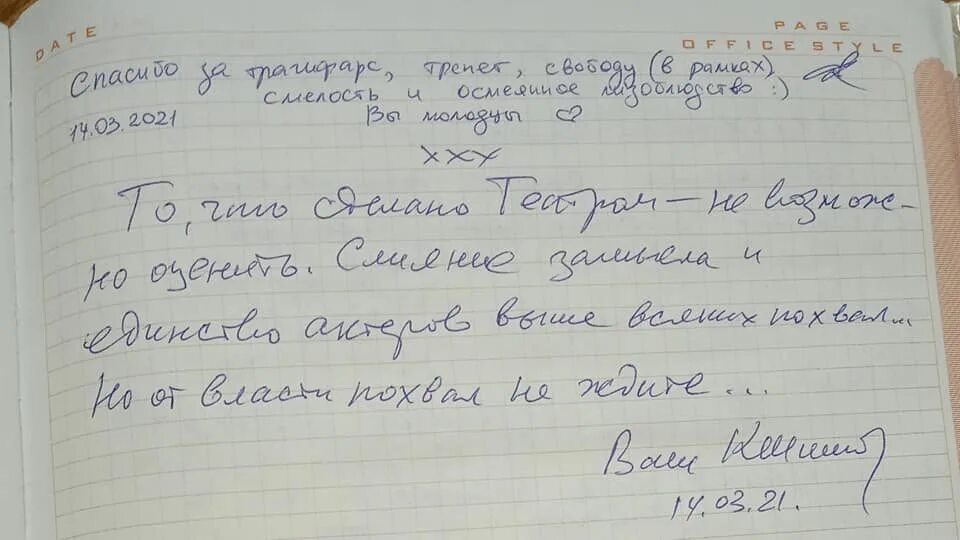 DATE
PAGE
OFFICE STYLE
Спасибо за трагифарс, трепет, свободу (в рамках),
смелость и осмеянное лизоблюдство :)
14.03.2021
Вы молодцы ♡
ххх
То, что сделано Театром – не возмож-
но оценить. Слияние замысла и
единство актеров выше всяких похвал...
Но от власти похвал не ждите...
Ваш
14.03.21.